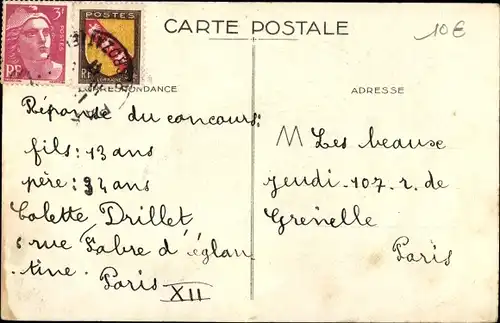 CARTE POSTALE
10€
3F
POSTES
RF
POSTES
LORRAINE
CORRESPONDANCE
ADRESSE
Réponse du concours:
fils: 13 ans
père: 34 ans
Colette Drillet
6 rue Fabre d'églan
.tine. Paris
XII
M Les beaux
jeudi. 107. r. de
Grenelle
Paris